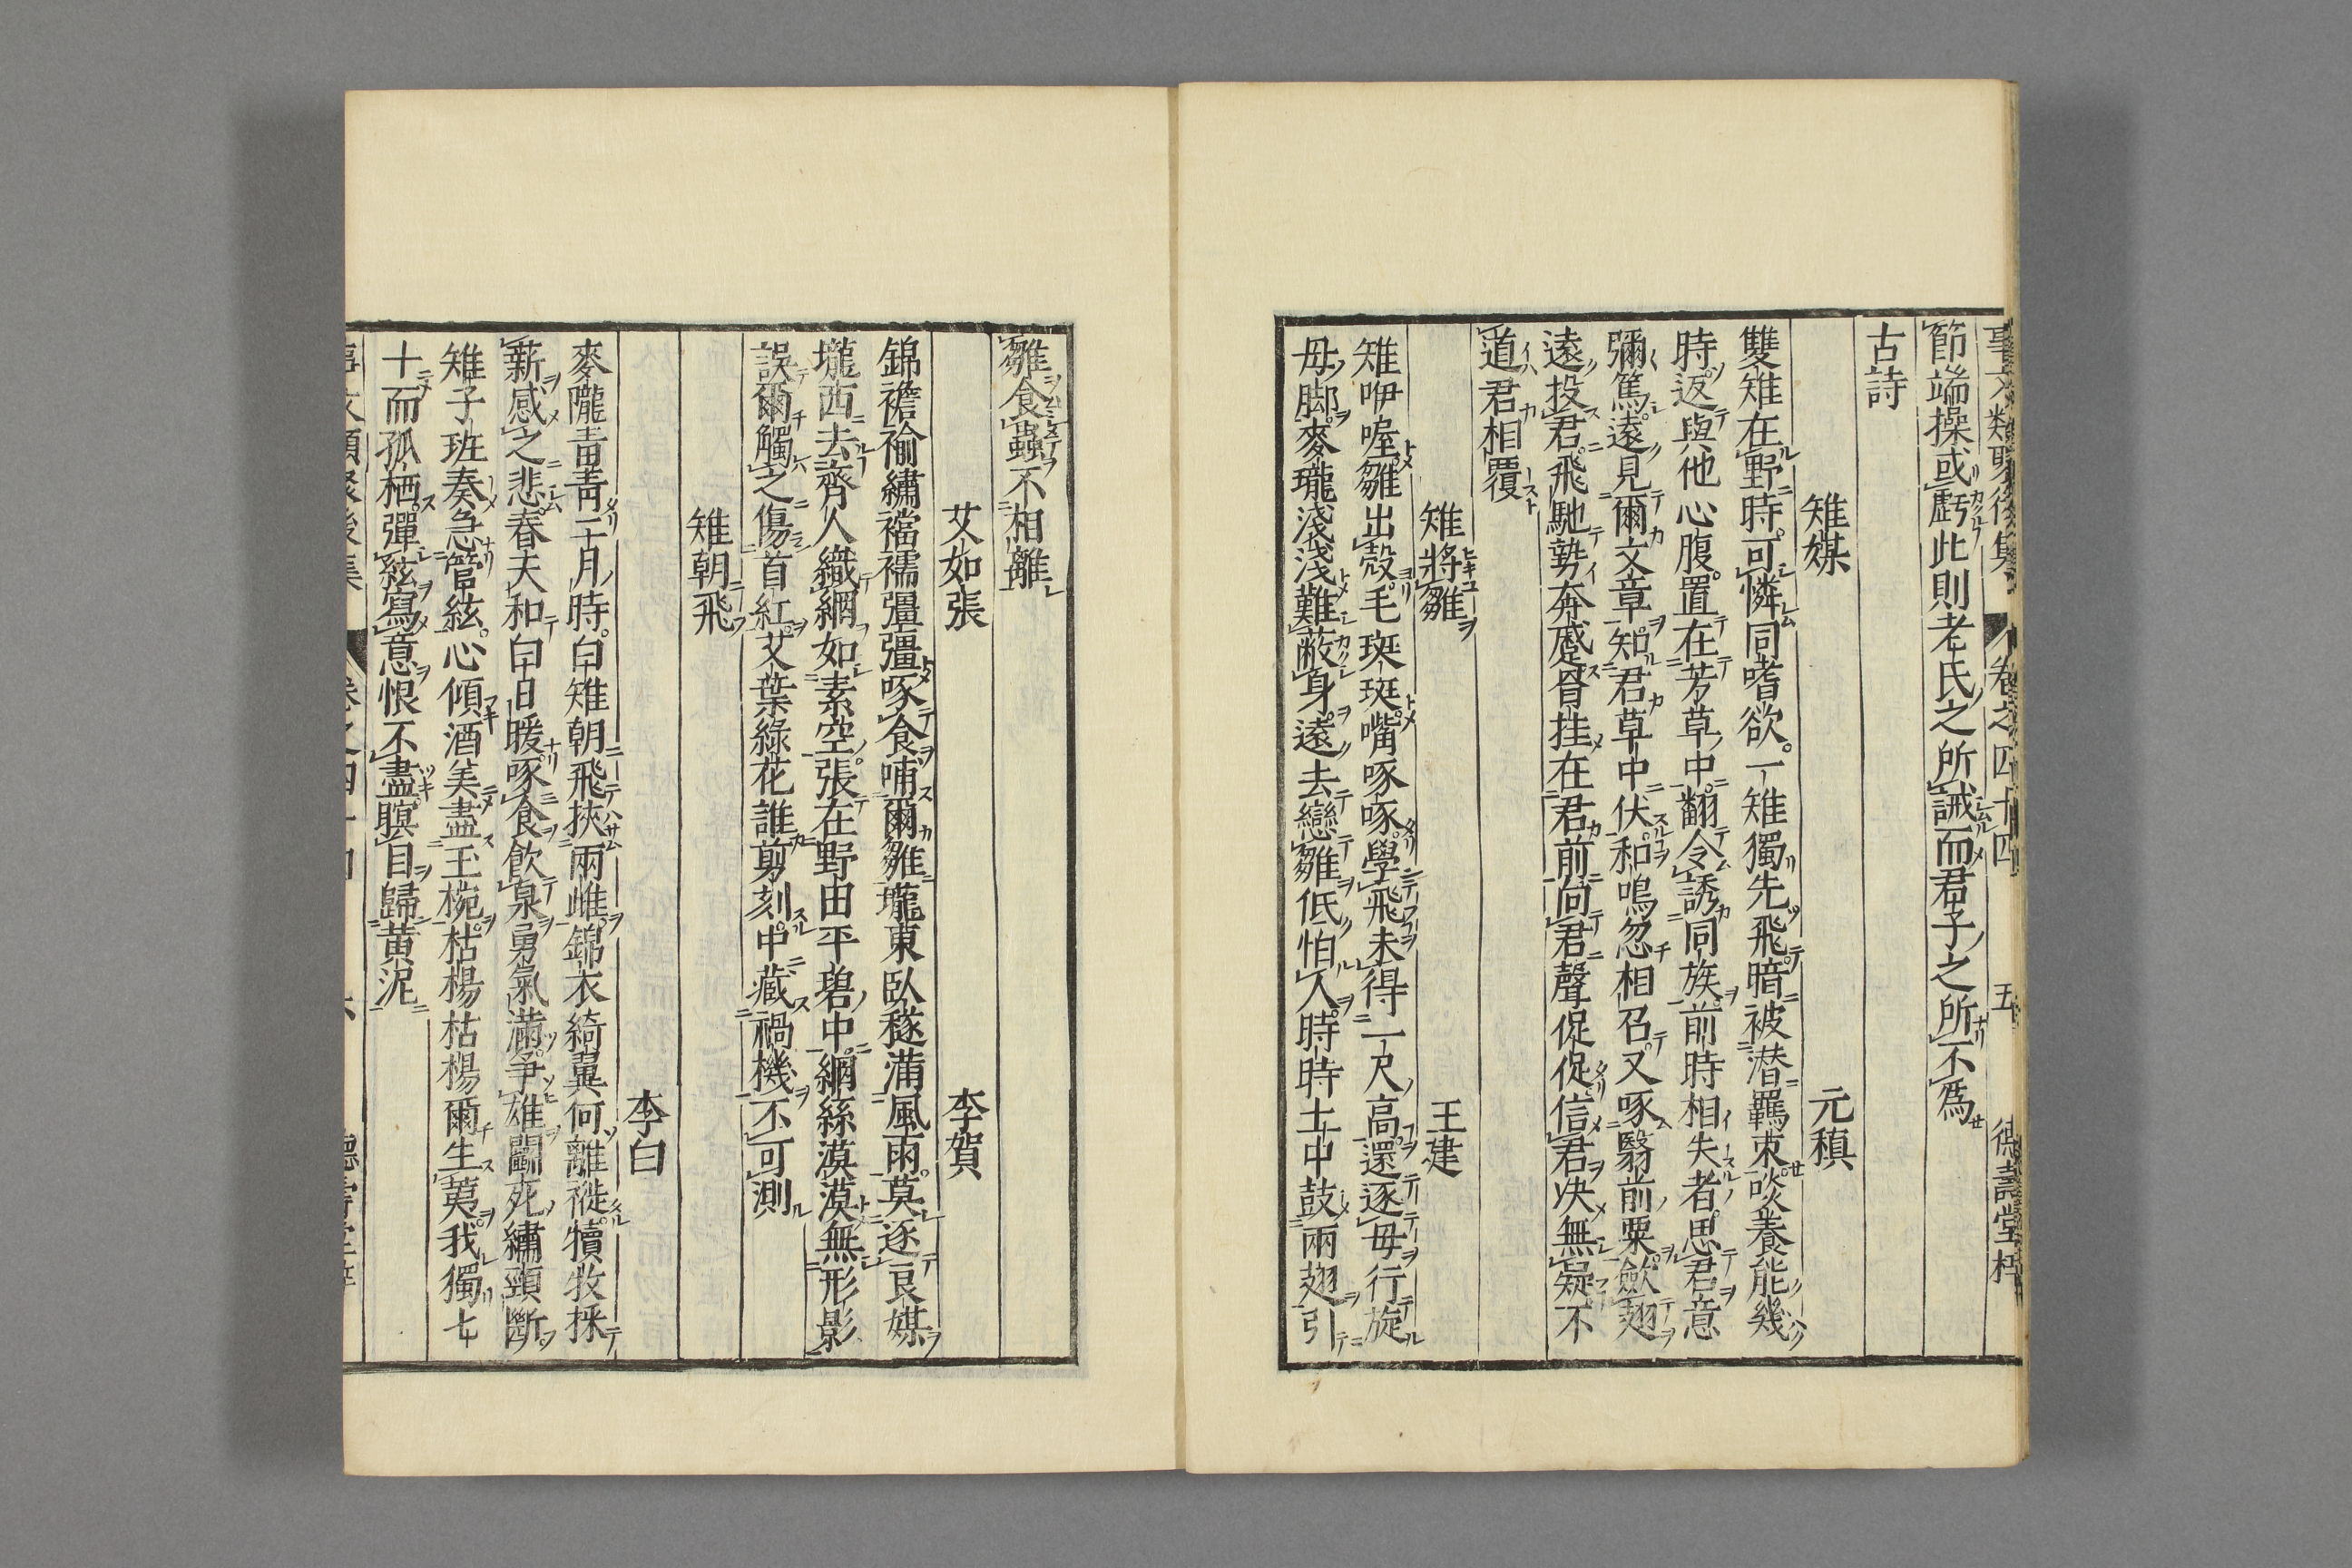 事文類聚後集 卷之四十四 五 德壽堂梓
節端操或虧此則老氏之所誡而君子之所不爲
古詩
雉媒 元稹
雙雉在野時可憐同嗜欲一雉獨先飛暗被潜羈束啖養能幾
時返與他心腹置在芳草中翻令誘同族前時相失者思君意
彌篤遠見爾文章知君草中伏和鳴忽相召又啄翳前粟歛翅
遠投君飛馳勢奔蹙罥挂在君前向君聲促促信君决無疑不
道君相覆
雉將雛 王建
雉咿喔雛出殼毛斑斑嘴啄啄學飛未得一尺高還逐母行旋
母脚麥瓏淺淺難蔽身遠去戀雛低怕人時時土中鼓兩翅引
雛食蟲不相離
艾如張 李賀
錦襜褕繡襠襦彊彊啄食哺爾雛壠東臥穟滿風雨莫逐哀媒
壠西去齊人織網如素空張在野田平碧中網絲漠漠無形影
誤爾觸之傷首紅艾葉綠花誰剪刻中藏禍機不可測
雉朝飛 李白
麥隴青青三月時白雉朝飛挾兩雌錦衣綺翼何離褷犢牧採
薪感之悲春天和白日暖啄食飲泉勇氣滿爭雄鬬死繡頸斷
雉子班奏急管絃心傾酒美盡玉椀枯楊枯楊爾生荑我獨七
十而孤栖彈絃寫意恨不盡瞑目歸黄泥